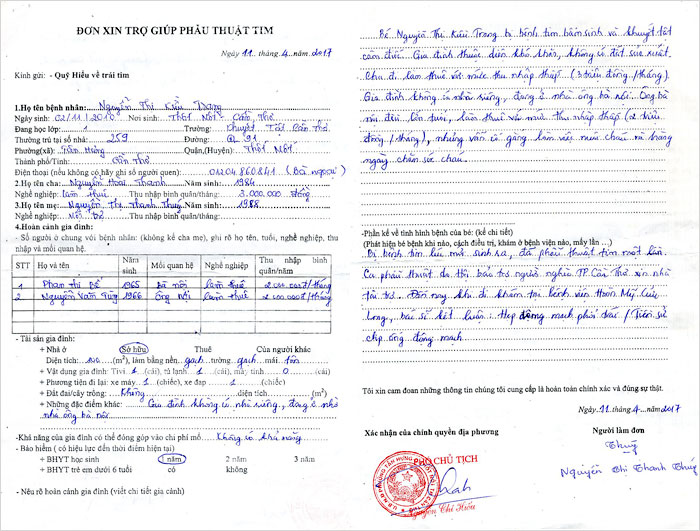 ĐƠN XIN TRỢ GIÚP PHẪU THUẬT TIM
Ngày 11 .tháng.4 ..năm.2017
Kính gửi: - Quỹ Hiểu về trái tim
1.Họ tên bệnh nhân: Nguyễn Thị Kiều Trang
Ngày sinh: 02/11/2010 Nơi sinh: Thốt Nốt Cần Thơ
Đang học lớp: 1 Trường: Khuyết Tật Cần Thơ
Thường trú tại số nhà: 259 Đường: QL 91
Phường(xã): Tân Hưng Quận,(Huyện): Thốt Nốt
Thành phố/Tỉnh: Cần Thơ
Điện thoại (nếu không có hãy ghi số người quen): 01204860841 (Bà ngoại)
2.Họ tên cha: Nguyễn Hoài Thanh Năm sinh: 1984
Nghề nghiệp: làm thuê Thu nhập bình quân/tháng: 3.000.000 đồng
3.Họ tên mẹ: Nguyễn Thị Thanh Thuý Năm sinh: 1988
Nghề nghiệp: Thu nhập bình quân/tháng:
4.Hoàn cảnh gia đình:
- Số người ở chung với bệnh nhân: (không kể cha mẹ), ghi rõ họ tên, tuổi, nghề nghiệp, thu nhập và mối quan hệ.
STT Họ và tên Năm sinh Mối quan hệ Nghề nghiệp Thu nhập bình quân/năm
1 Phan Thị Bé 1965 Bà nội làm thuê 2.000.000đ/tháng
2 Nguyễn Văn Tùng 1966 Ông nội làm thuê 2.000.000đ/tháng
- Tài sản gia đình:
+ Nhà ở Sở hữu Thuê Của người khác
Diện tích: (m²), làm bằng nền gạch tường gạch mái tôn
+ Vật dụng gia đình: Tivi 1 (cái), tủ lạnh 1 (cái), mã, tính 0 (cái)
+ Phương tiện đi lại: xe máy 1 (chiếc), xe đạp 1 (chiếc)
+ Đất đai/cây trồng: Không diện tích (m²)
+ Những đặc điểm khác: Gia đình không có nhà riêng, đang ở nhờ
nhà ông bà nội
-Khả năng của gia đình có thể đóng góp vào chi phí mổ: Không có khả năng
- Bảo hiểm (có hiệu lực đến thời điểm hiện tại)
+ BHYT học sinh 1 năm 2 năm 3 năm
+ BHYT trẻ em dưới 6 tuổi có không
- Nêu rõ hoàn cảnh gia đình (viết chi tiết gia cảnh)
Bé Nguyễn Thị Kiều Trang bị bệnh tim bẩm sinh và khuyết tật
câm điếc. Gia đình thuộc diện khó khăn, không có đất sản xuất.
Cha đi làm thuê với mức thu nhập thấp (3 triệu đồng/tháng).
Gia đình không có nhà riêng, đang ở nhà ông bà nội. Ông bà
nội đều lớn tuổi, làm thuê với mức thu nhập thấp (2 triệu
đồng/tháng), nhưng vẫn cố gắng làm việc nuôi cháu và hàng
ngày chăm sóc cháu.
-Phần kể về tình hình bệnh của bé: (kể chi tiết)
(Phát hiện bé bệnh khi nào, cách điều trị, khám ở bệnh viện nào, mấy lần ...)
Bị bệnh tim lúc mới sinh ra, đã phẫu thuật tim một lần.
Ca phẫu thuật do Hội bảo trợ người nghèo TP. Cần Thơ xin nhà
tài trợ. Đến nay khi đi khám tại bệnh viện Hoàn Mỹ Cửu
Long, bác sĩ kết luận: Hẹp động mạch phổi / Tiền sử
ống động mạch
Tôi xin cam đoan những thông tin chúng tôi cung cấp là hoàn toàn chính xác và đúng sự thật.
Ngày..11..tháng...4...năm2017
Xác nhận của chính quyền địa phương Người làm đơn
PHÓ CHỦ TỊCH
Thuý
Nguyễn Thị Thanh Thúy
Nguyễn Chí Hiếu